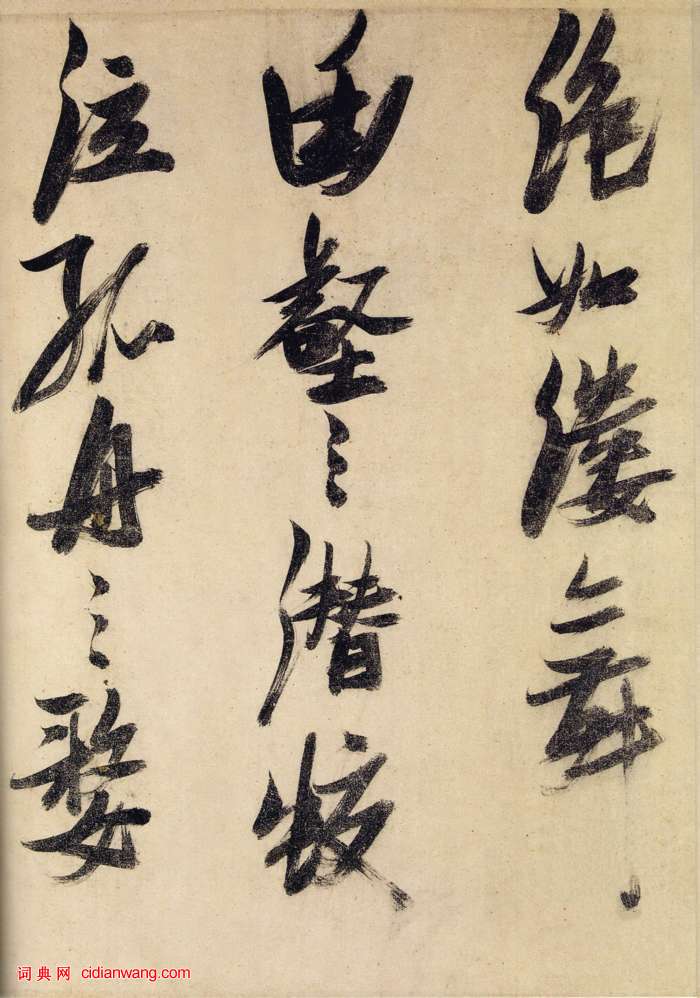 絶如縷舞
幽壑之潜蛟
泣孤舟之嫠
词典网 cidianwang.com